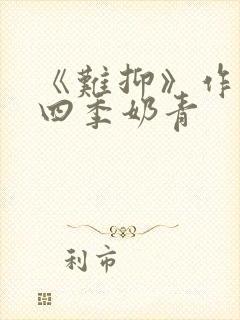 《難抑》作
四季奶青
利市